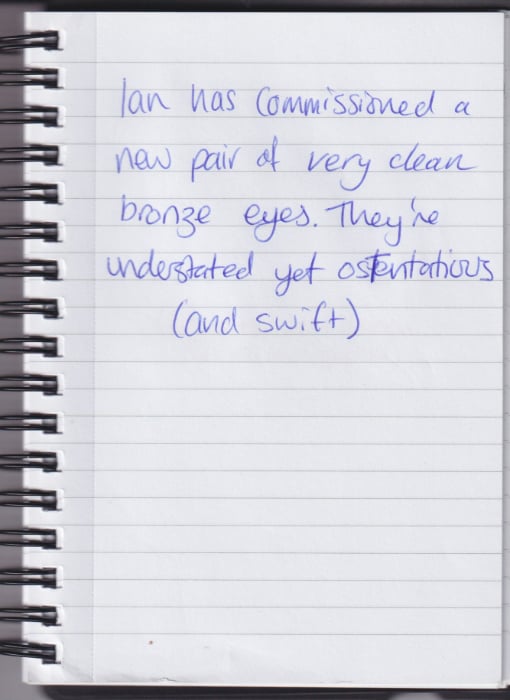 Ian has commissioned a
new pair of very clean
bronze eyes. They're
understated yet ostentatious
(and swift)